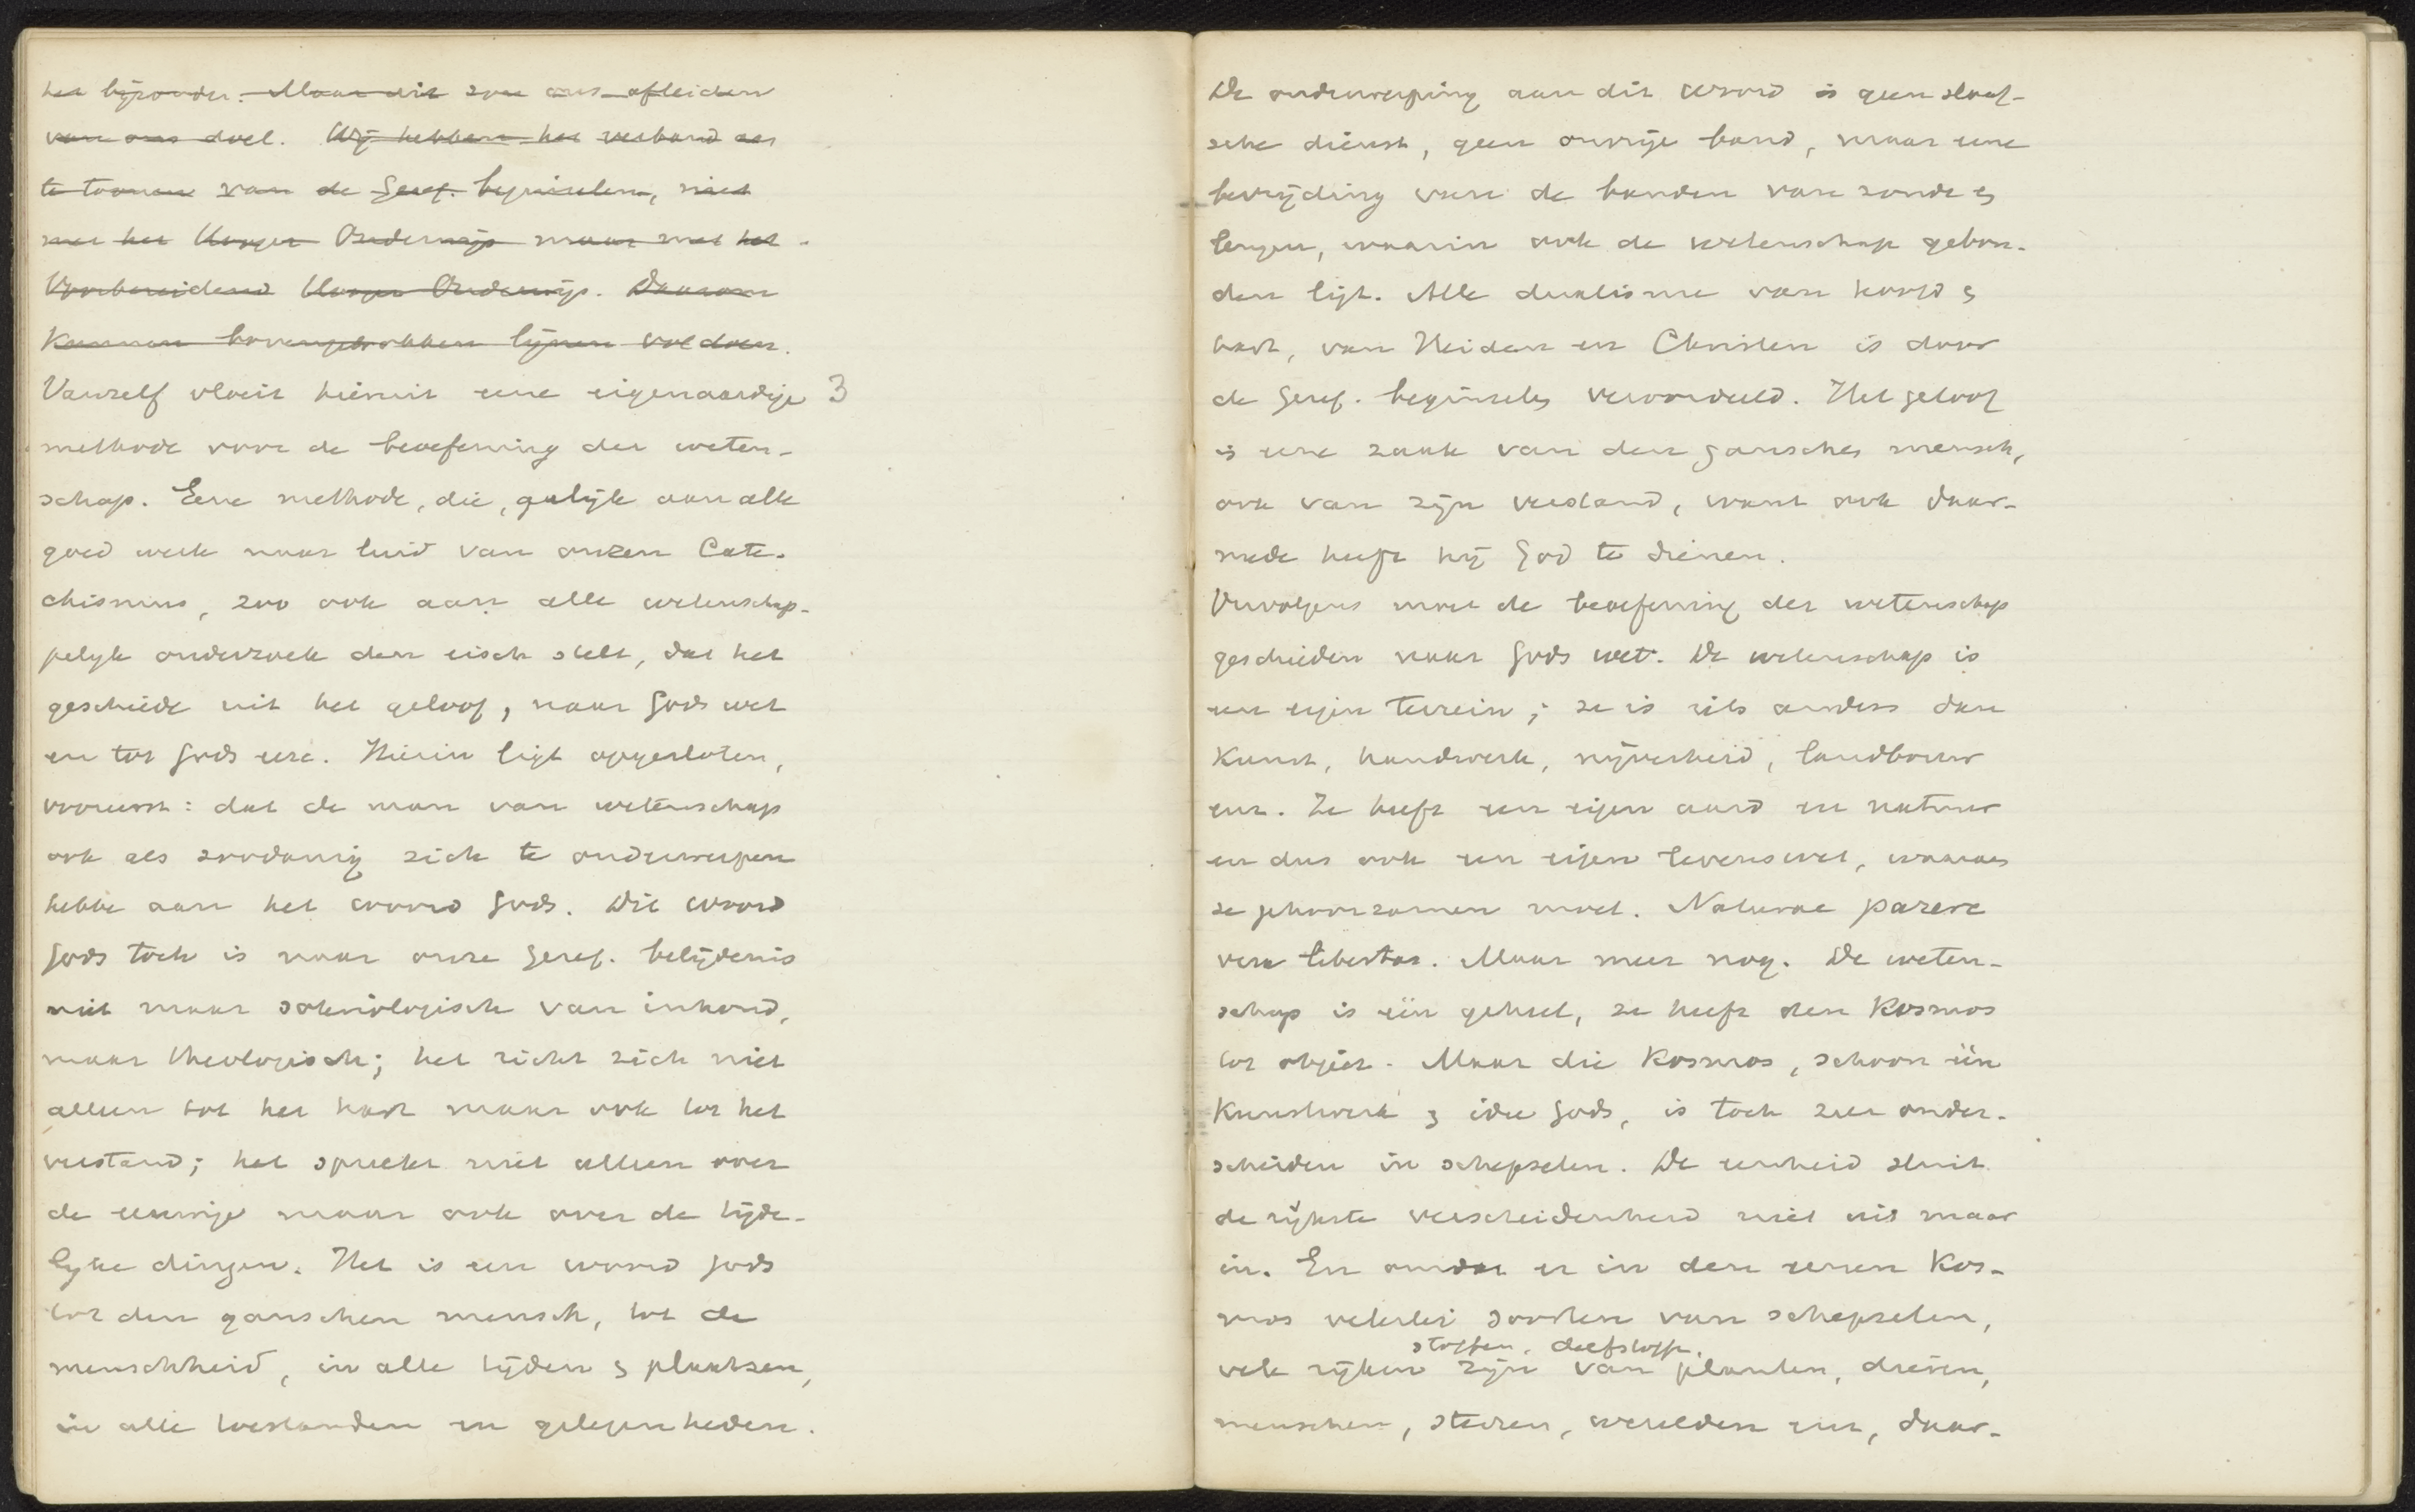 het bijzonder. Maar dit zou ons afleiden
van ons doel. Wij hebben het verband aan
te toonen van de Geref. beginselen, niet
met het Hooger Onderwijs maar met het
Voorbereidend Hooger Onderwijs. Daarom
kunnen bovengetrokken lijnen voldoen.
Vanzelf vloeit hieruit eene eigenaardige 3
methode voor de beoefening der weten-
schap. Eene methode, die, gelijk aan alle
goed werk naar luid van onzen Cate-
chismus, zoo ook aan alle wetenschap-
pelijk onderzoek den eisch stelt, dat het
geschiede uit het geloof, naar Gods wet
en tot Gods eere. Hierin ligt opgesloten,
vooreerst: dat de man van wetenschap
ook als zoodanig zich te onderwerpen
hebbe aan het woord Gods. Dit woord
Gods toch is naar onze Geref. belijdenis
niet maar soteriologisch van inhoud,
maar theologisch; het richt zich niet
alleen tot het hart maar ook tot het
verstand; het spreekt niet alleen over
de eeuwige maar ook over de tijde-
lijke dingen. Het is een woord Gods
tot den ganschen mensch, tot de
menschheid, in alle tijden & plaatsen,
in alle toestanden en gelegenheden.
De onderwerping aan dit woord is geen slaaf-
sche dienst, geen onvrije band, maar eene
bevrijding van de banden van zonde &
leugen, waarin ook de wetenschap gebon-
den ligt. Alle dualisme van hoofd &
hart, van Heiden en Christen is door
de Geref. beginselen veroordeeld. Het geloof
is eene zaak van den ganschen mensch,
ook van zijn verstand, want ook daar-
mede heeft hij God te dienen.
Vervolgens moet de beoefening der wetenschap
geschieden naar Gods wet. De wetenschap is
een eigen terrein; ze is iets anders dan
kunst, handwerk, nijverheid, landbouw
enz. Ze heeft een eigen aard en natuur
en dus ook een eigen levenswet, waaraan
ze gehoorzamen moet. Naturae parere
vera libertas. Maar meer nog. De weten-
schap is één geheel, ze heeft den kosmos
tot object. Maar die kosmos, schoon één
kunstwerk & idee Gods, is toch zeer onder-
scheiden in schepselen. De eenheid sluit
de rijkste verscheidenheid niet uit maar
in. En omdat er in den eenen kos-
mos velerlei soorten van schepselen,
stoffen, delfstoffen,
vele rijken zijn van planten, dieren,
menschen, sterren, werelden enz, daar-